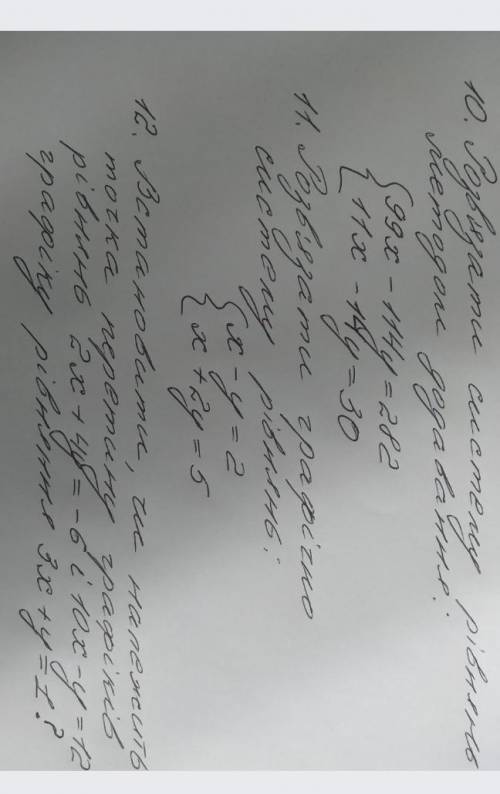 10. Розв'язати систему рівнянь
методом додавання:
{99x - 114y = 282
11x - 14y = 30
11. Розв'язати графічно
систему рівнянь:
{x - y = 2
x + 2y = 5
12. Встановити, чи належить
точка перетину графіків
рівнянь 2x + 4y = -6 і 10x - y = 12
графіку рівняння 3x + y = 1?